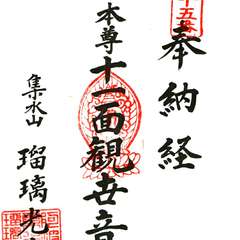 十五番
奉納経
本尊十一面観世音
集水山
瑠璃光